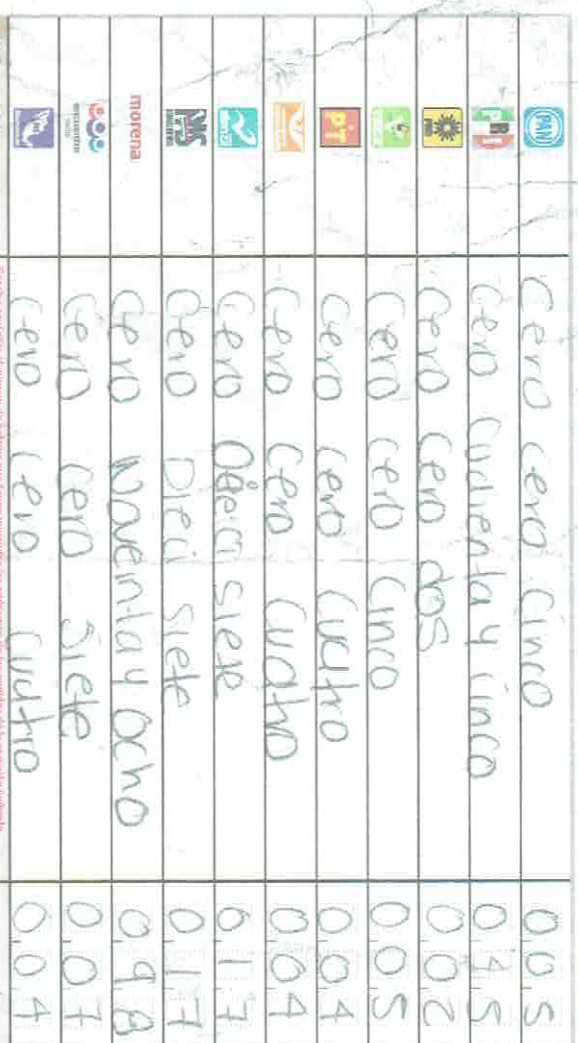 PAN cero cero cinco 0 0 5
PRI cero cuarenta y cinco 0 4 5
PRD cero cero dos 0 0 2
cero cero cinco 0 0 5
PT cero cero cuatro 0 0 4
cero cero cuatro 0 0 4
cero Dieci siete 0 1 7
cero Dieci siete 0 1 7
morena cero Noventa y ocho 0 9 8
encuentro cero cero siete 0 0 7
cero cero cuatro 0 0 4